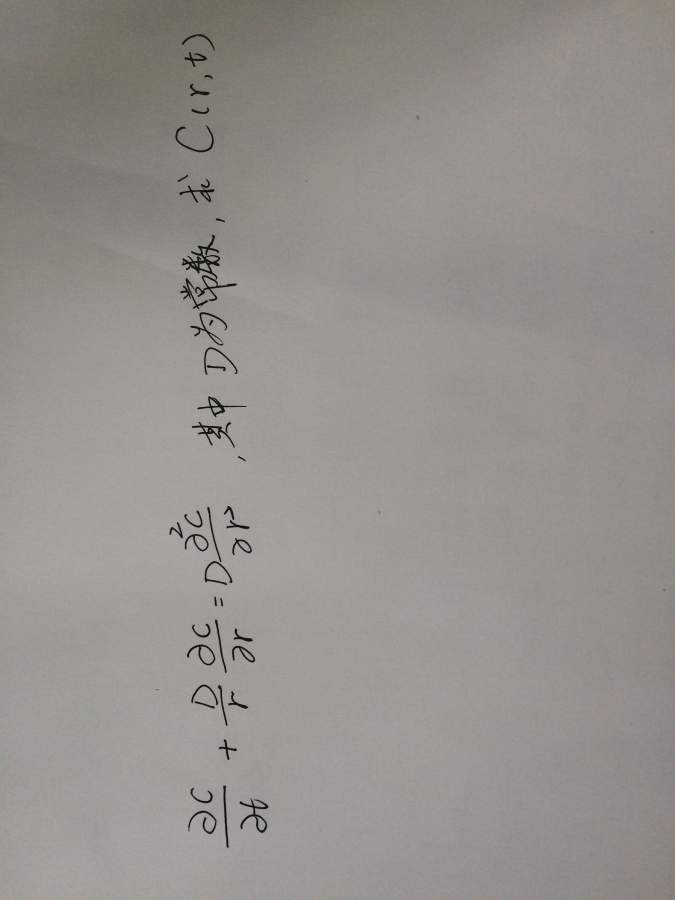 ∂C/∂t + D/r ∂C/∂r = D ∂²C/∂r², 其中 D为常数, 求 C(r,t)